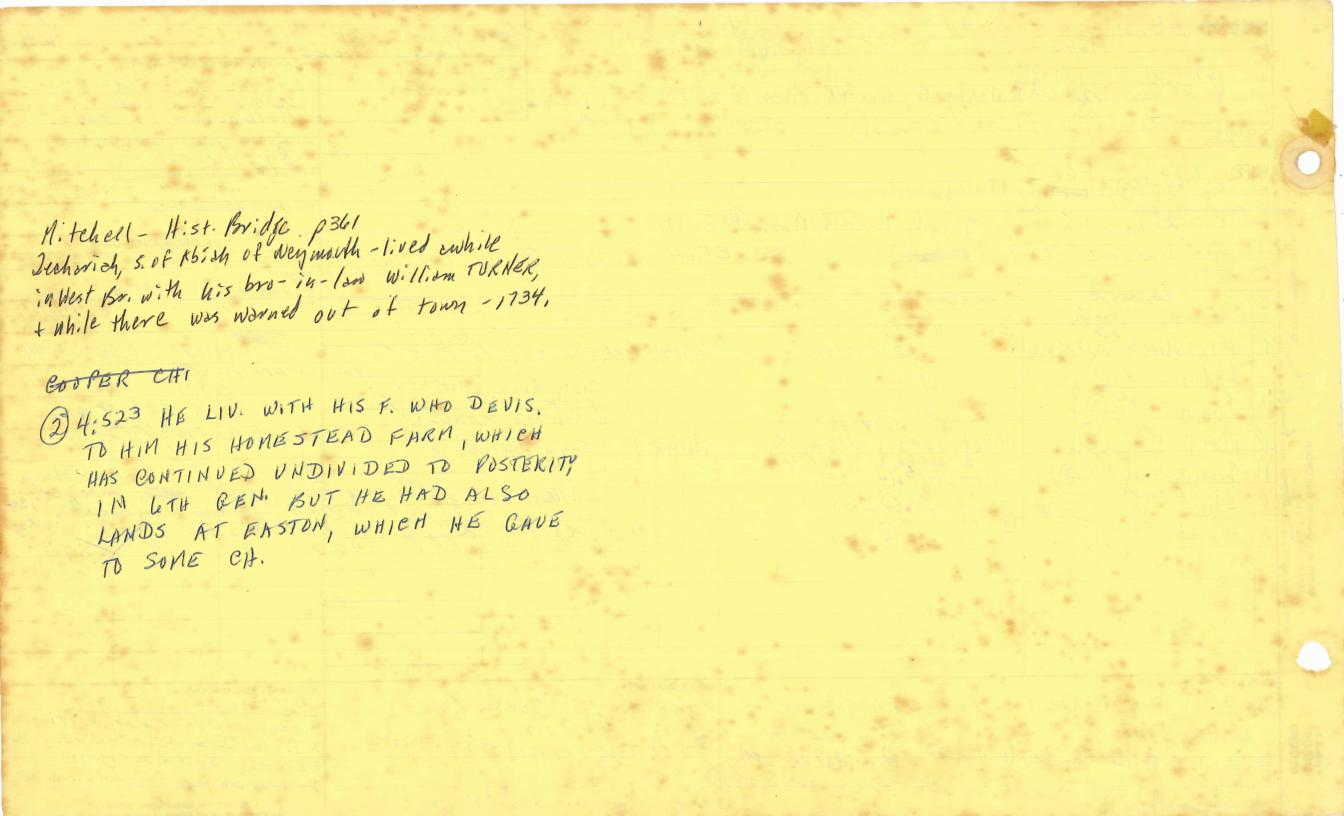 Mitchell - Hist. Bridge. p361
Zechariah, s. of Abiah of Weymouth - lived awhile
in West Br. with his bro-in-law William TURNER,
+ while there was warned out of town - 1734.
COOPER CH1
② 4:523 HE LIV. WITH HIS F. WHO DEVIS.
TO HIM HIS HOMESTEAD FARM, WHICH
HAS CONTINUED UNDIVIDED TO POSTERITY
IN 6TH GEN. BUT HE HAD ALSO
LANDS AT EASTON, WHICH HE GAVE
TO SOME CH.